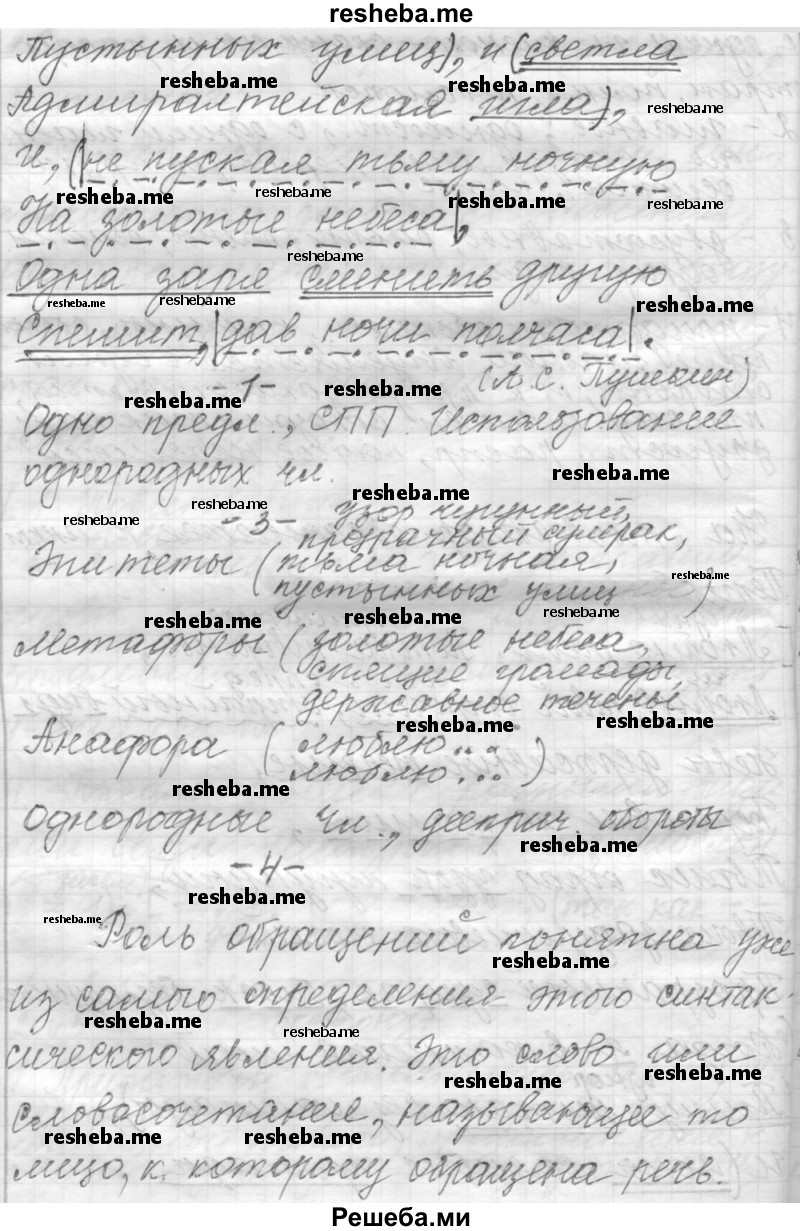 resheba.me
Пустынных улиц), и (светла
Адмиралтейская игла),
и, |не пуская тьму ночную
На золотые небеса|,
Одна заря сменить другую
Спешит, |дав ночи полчаса|.
(А.С. Пушкин)
-1-
Одно предл., СПП. Использование
однородных чл.
-3-
Эпитеты (узор чугунный,
прозрачный сумрак,
тьма ночная,
пустынных улиц)
Метафоры (золотые небеса,
спящие громады,
державное теченье
Анафора (люблю...
люблю...)
Однородные чл., дееприч. обороты
-4-
Роль обращений понятна уже
из самого определения этого синтак-
сического явления. Это слово или
словосочетание, называющее то
лицо, к которому обращена речь.
Решеба.ми